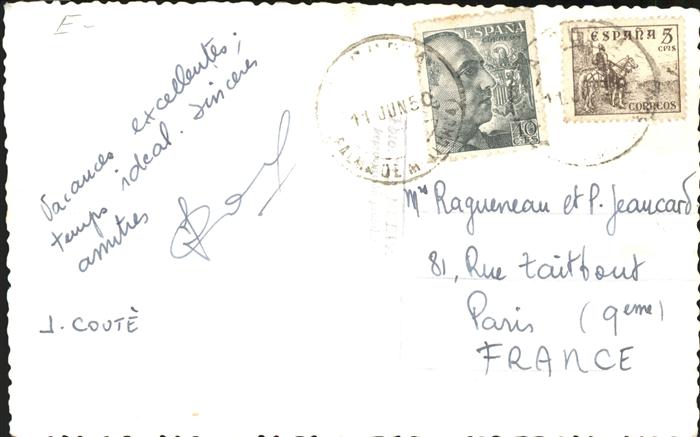 E-
Vacances excellentes;
temps idéal. Sincères
amitiés
J. COUTÈ
ESPAÑA
CORREOS
10
CTS
ESPAÑA 5
CTS
CORREOS
11 JUN 50
PALMA DE M
11
Mrs Ragueneau et P. Jeancard
81, Rue Taitbout
Paris (9eme)
FRANCE